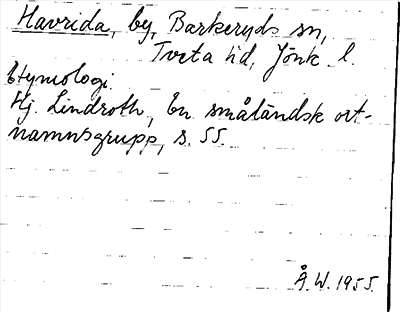 Havrida, by, Barkeryds sn,
Tveta hd, Jönk. l.
Etymologi:
Hj. Lindroth, En småländsk ort-
namnsgrupp, s. 55.
Å.W. 1955.